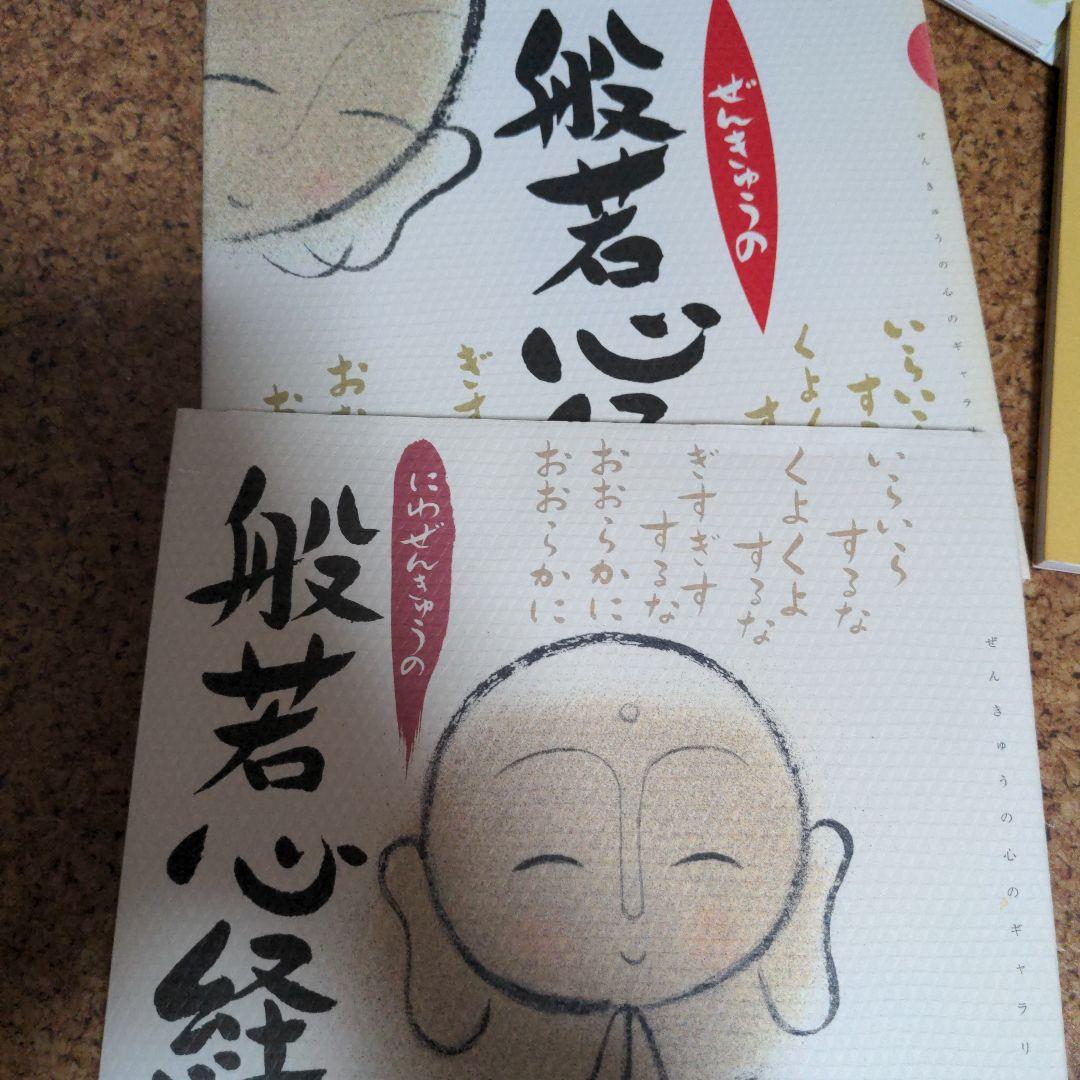 ぜんきゅうの心のギャラ
ぜんきゅうの
般若心経
いらいら
す
くよく
す
ぎす
おお
お
ぜんきゅうの心のギャラリ
いらいら
するな
くよくよ
するな
ぎすぎす
するな
おおらかに
おおらかに
にわぜんきゅうの
般若心経